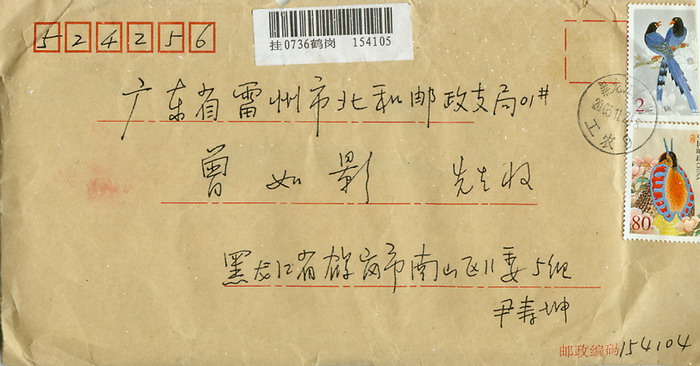 524256
挂0736鹤岗 154105
2
80
工农
广东省雷州市北和邮政支局01#
曾如影 先生收
黑龙江省鹤岗市南山区11委5组
尹寿坤
邮政编码154104